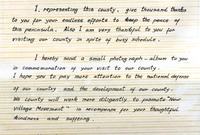 I, representing this county, give thousand thanks
to you for your endless efforts to keep the peace of
this peninsula. Also I am very thankful to you for
visiting our county in spite of busy schedule.
I hereby send a small photograph-album to you
in commemoration of your visit to our county.
I hope you to pay more attention to the national defense
of our country and the development of our county.
We county will work more diligently to promote "New
Village Movement" in recompense for your thoughtful
kindness and suffering.